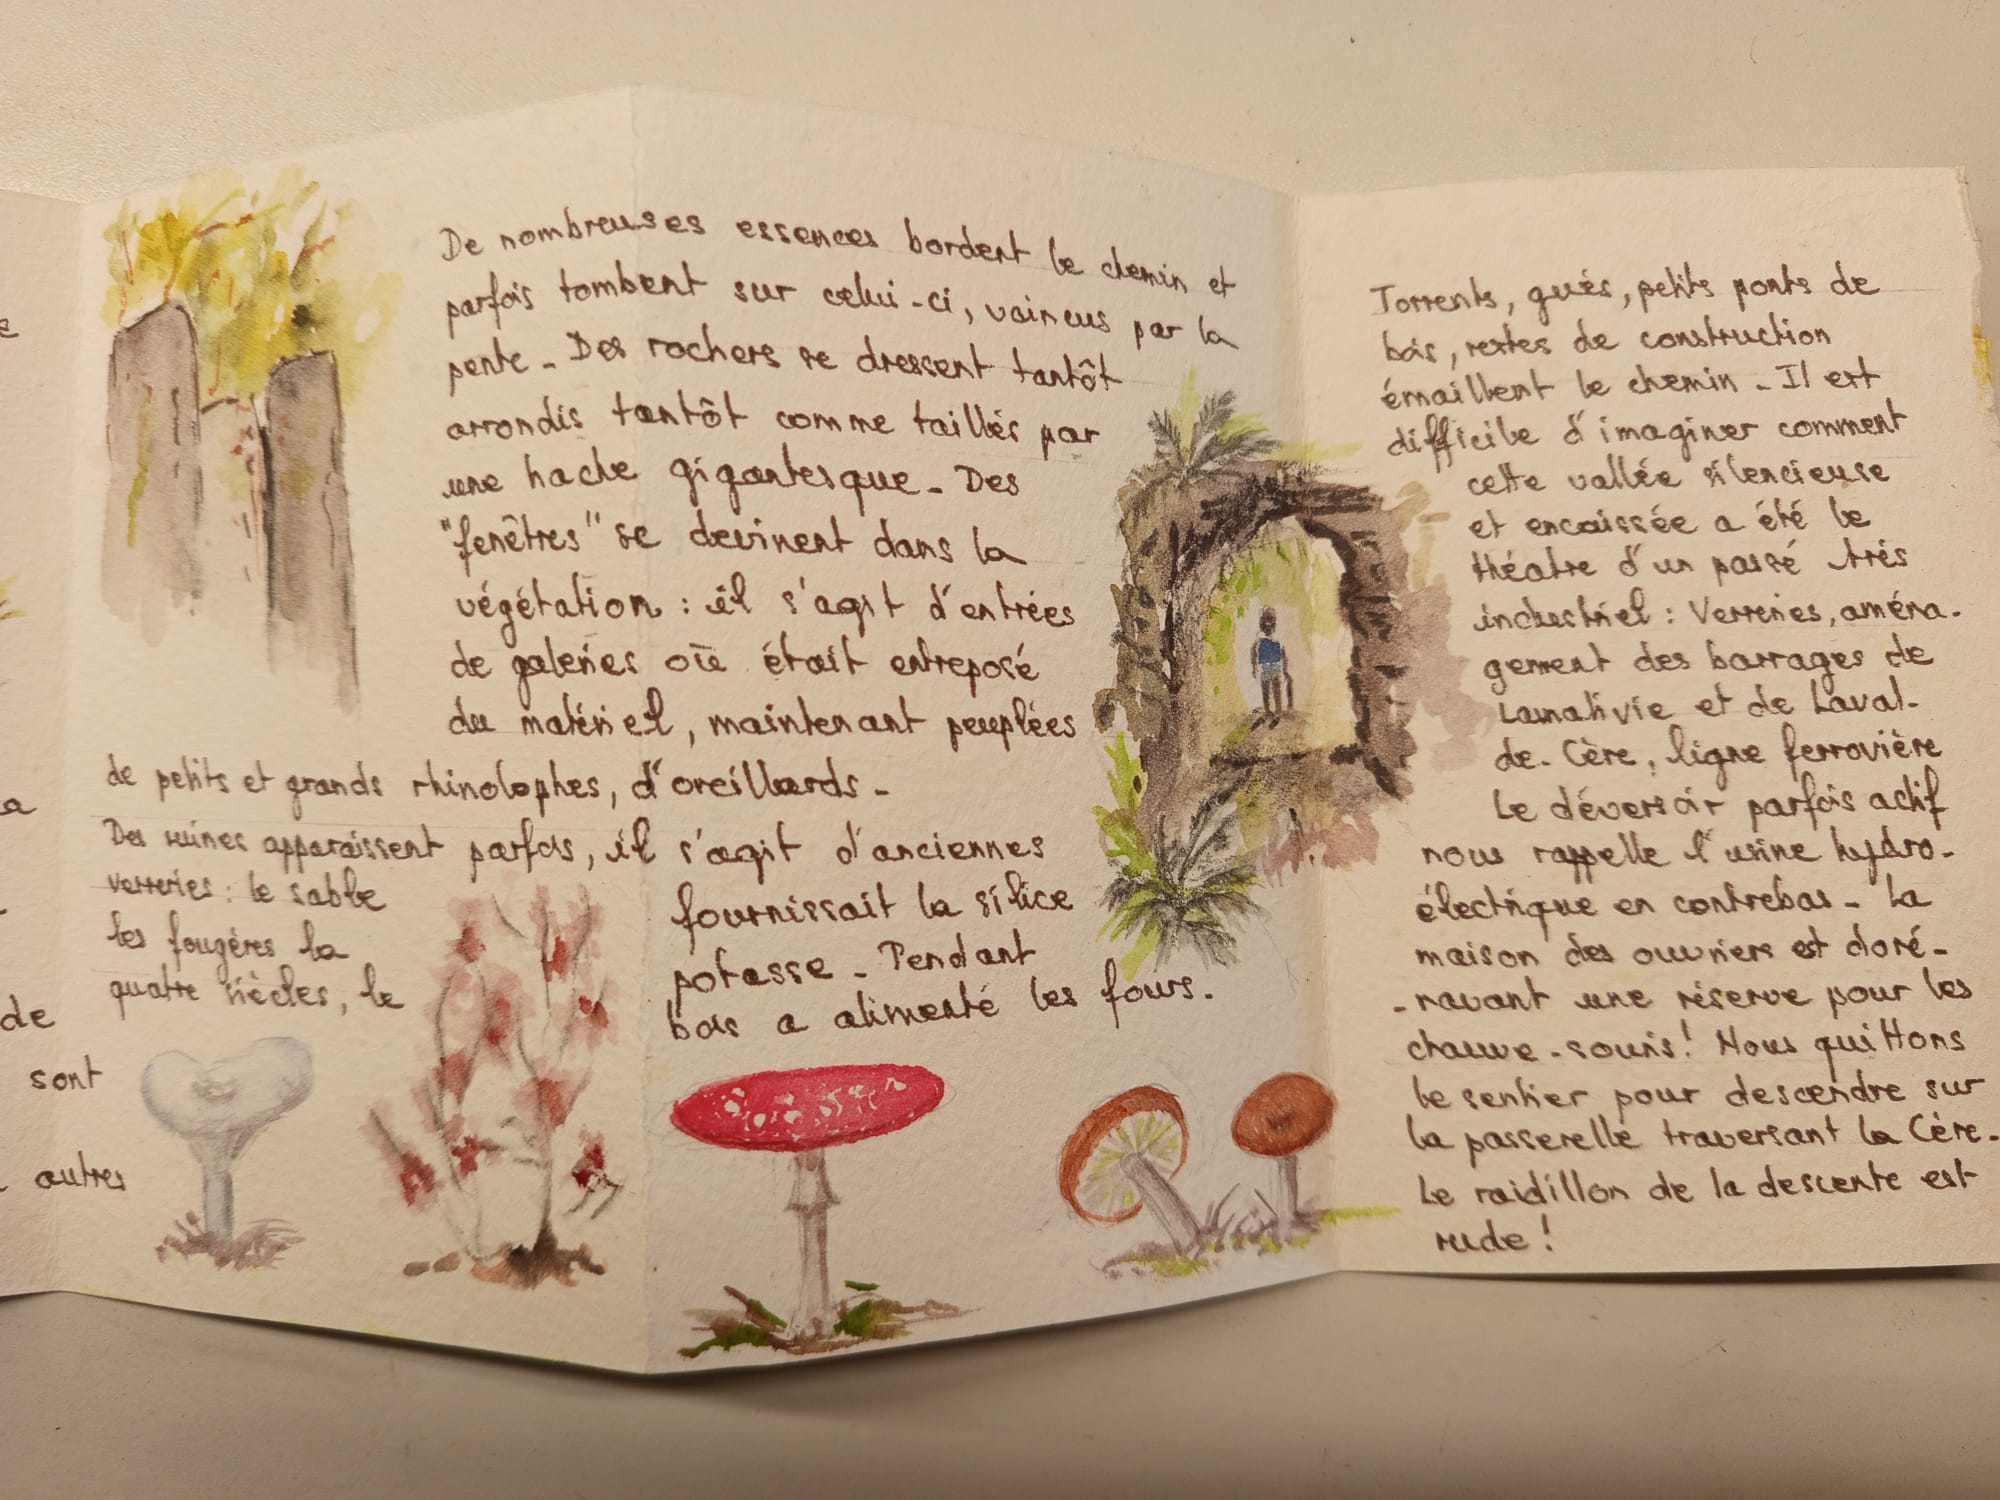 e
a
de
sont
autres
De nombreuses essences bordent le chemin et
parfois tombent sur celui-ci, vaincus par la
pente. Des rochers se dressent tantôt
arrondis tantôt comme taillés par
une hache gigantesque. Des
"fenêtres" se devinent dans la
végétation : il s'agit d'entrées
de galeries où était entreposé
du matériel, maintenant peuplées
de petits et grands rhinolophes, d'oreillards.
Des ruines apparaissent parfois, il s'agit d'anciennes
verreries : le sable fournissait la silice
les fougères la potasse. Pendant
quatre siècles, le bois a alimenté les fours.
Torrents, gués, petits ponts de
bois, restes de construction
émaillent le chemin. Il est
difficile d'imaginer comment
cette vallée silencieuse
et encaissée a été le
théatre d'un passé très
industriel : Verreries, aména-
gement des barrages de
Lamativie et de Laval-
de-Cère, ligne ferrovière
Le déversoir parfois actif
nous rappelle l'usine hydro-
électrique en contrebas. La
maison des ouvriers est doré-
-ravant une réserve pour les
chauve-souris! Nous quittons
le sentier pour descendre sur
la passerelle traversant la Cère.
Le raidillon de la descente est
rude !